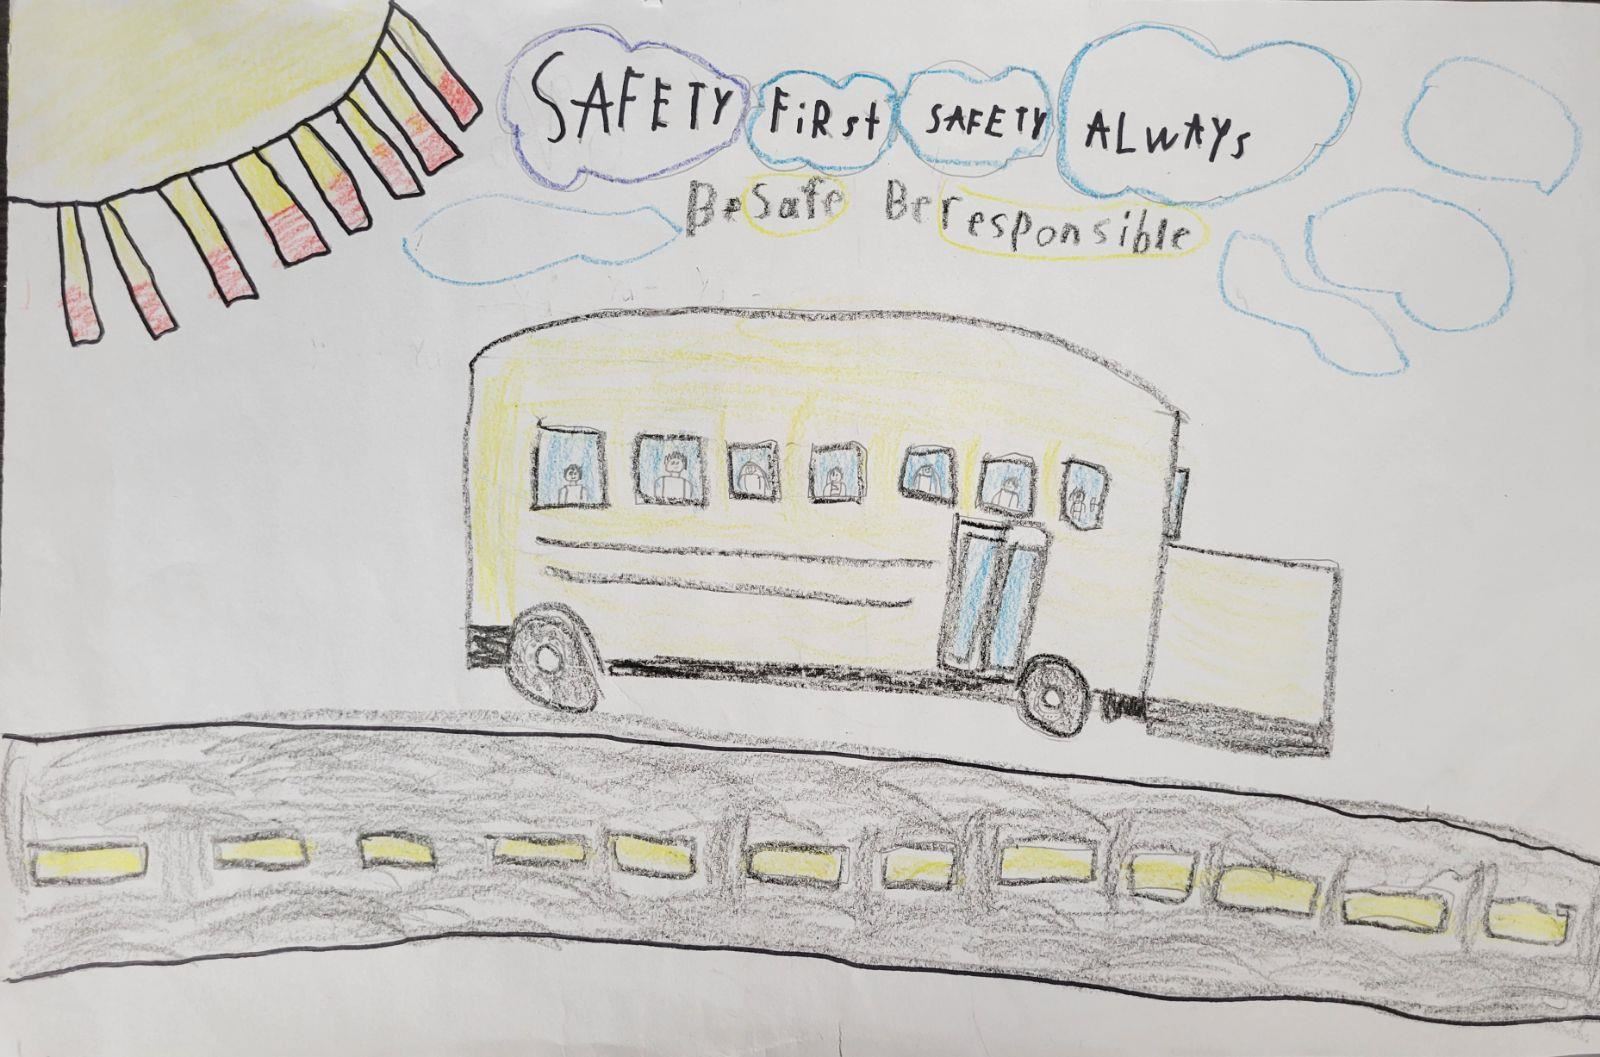 SAFETY FiRst SAFETY ALWAYs
Be Safe Be responsible